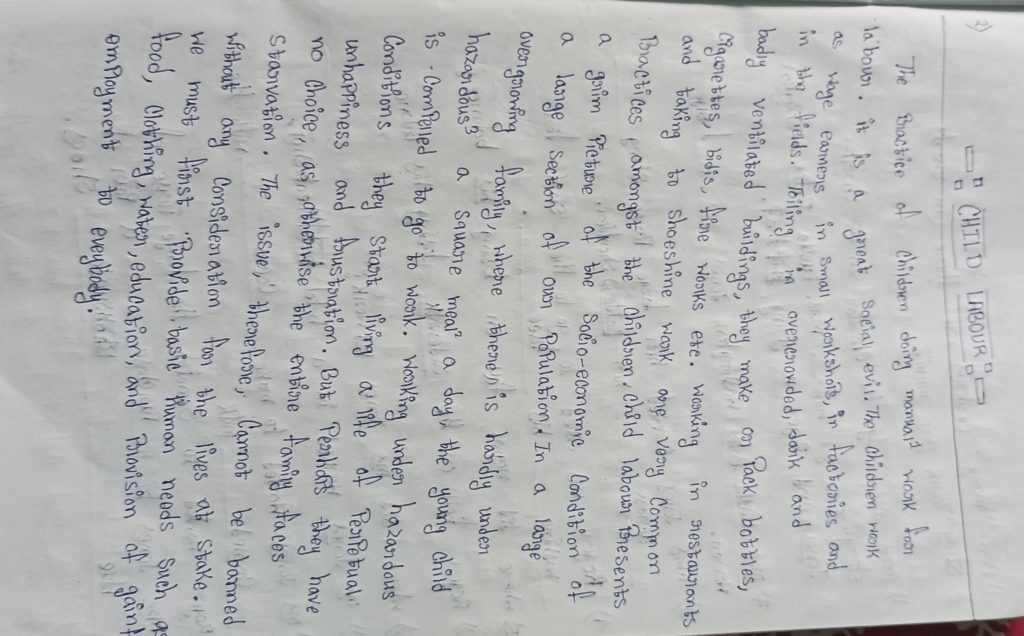 2)
CHILD LABOUR
The Practice of Children doing manual work for
labour. it is a great social evil. The children work
as wage earners in small workshops, in factories and
in the fields. Thiling in overcrowded, dark and
badly ventilated buildings, they make or Pack bottles,
Cigarettes, bidis, fire works etc. working in restaurants
and taking to shoeshine work are very Common
Practices amongst the Children. Child labour Presents
a grim Picture of the Socio-economic Condition of
a large Section of our Population. In a large
overgrowing family, where there is hardly under
hazardous a square meal a day, the young child
is Compelled to go to work. Working under hazardous
Conditions they Start living a life of Perpetual
unhappiness and frustration. But Perhaps they have
no Choice, as otherwise the entire family faces
Starvation. The issue, therefore, Cannot be banned
without any Consideration for the lives at Stake.
we must first Provide basic human needs Such as
food, Clothing, water, education, and Provision of
employment to everybody.